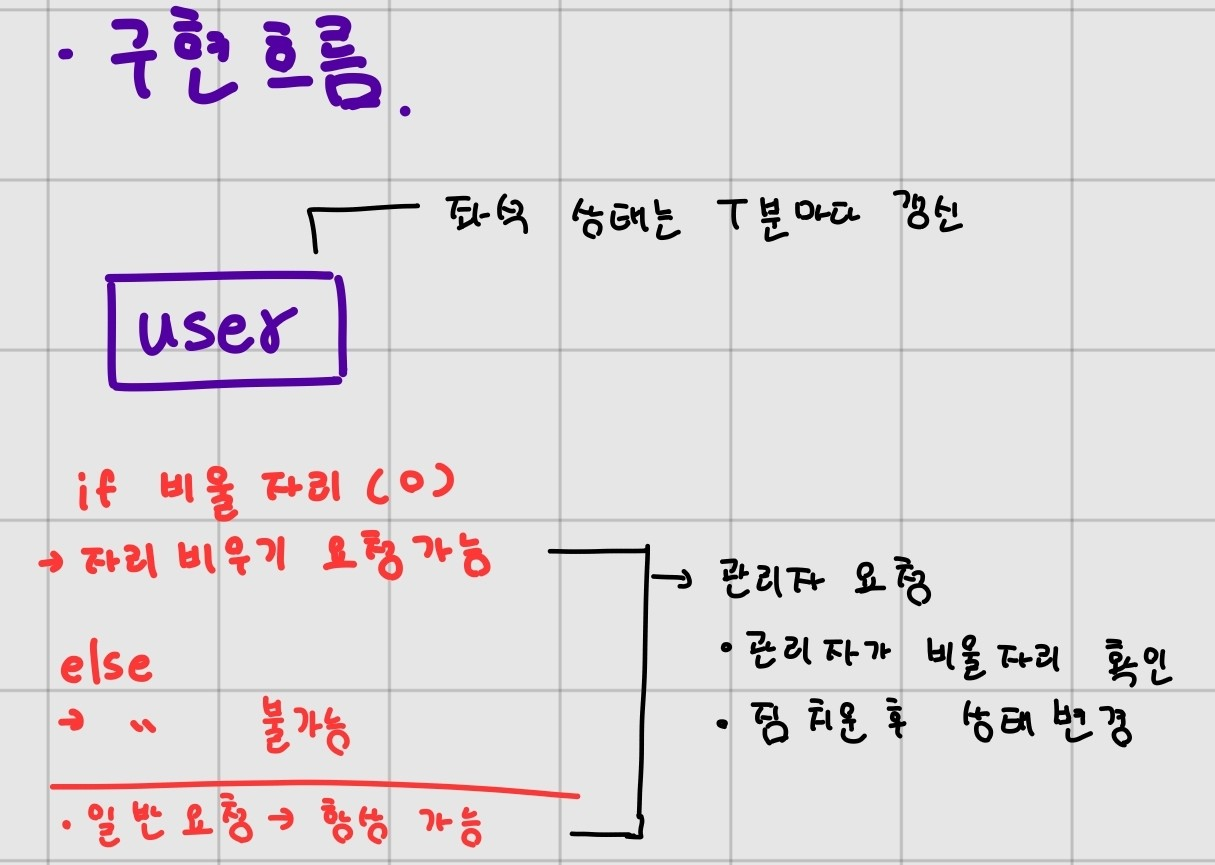 · 구현 흐름.
퇴석 상태는 T분마다 갱신
user
if 비울 자리 (O)
→ 자리 비우기 요청 가능
else
→ " 불가능
· 일반 요청 → 항상 가능
→ 관리자 요청
· 관리자가 비울 자리 확인
· 짐 치운 후 상태 변경